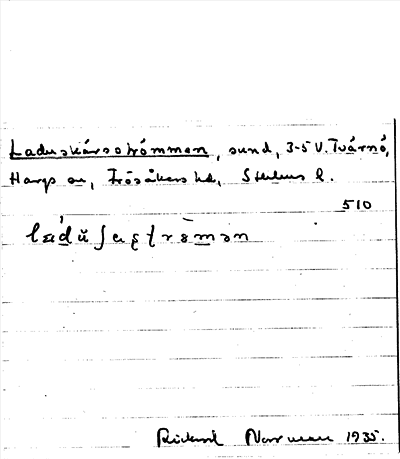 Laduskärsströmmen, sund, 3-5 V. Tvärnö,
Hargs sn, Frösåkers hd, Sthlms l.
510
Rickard Norman 1935.